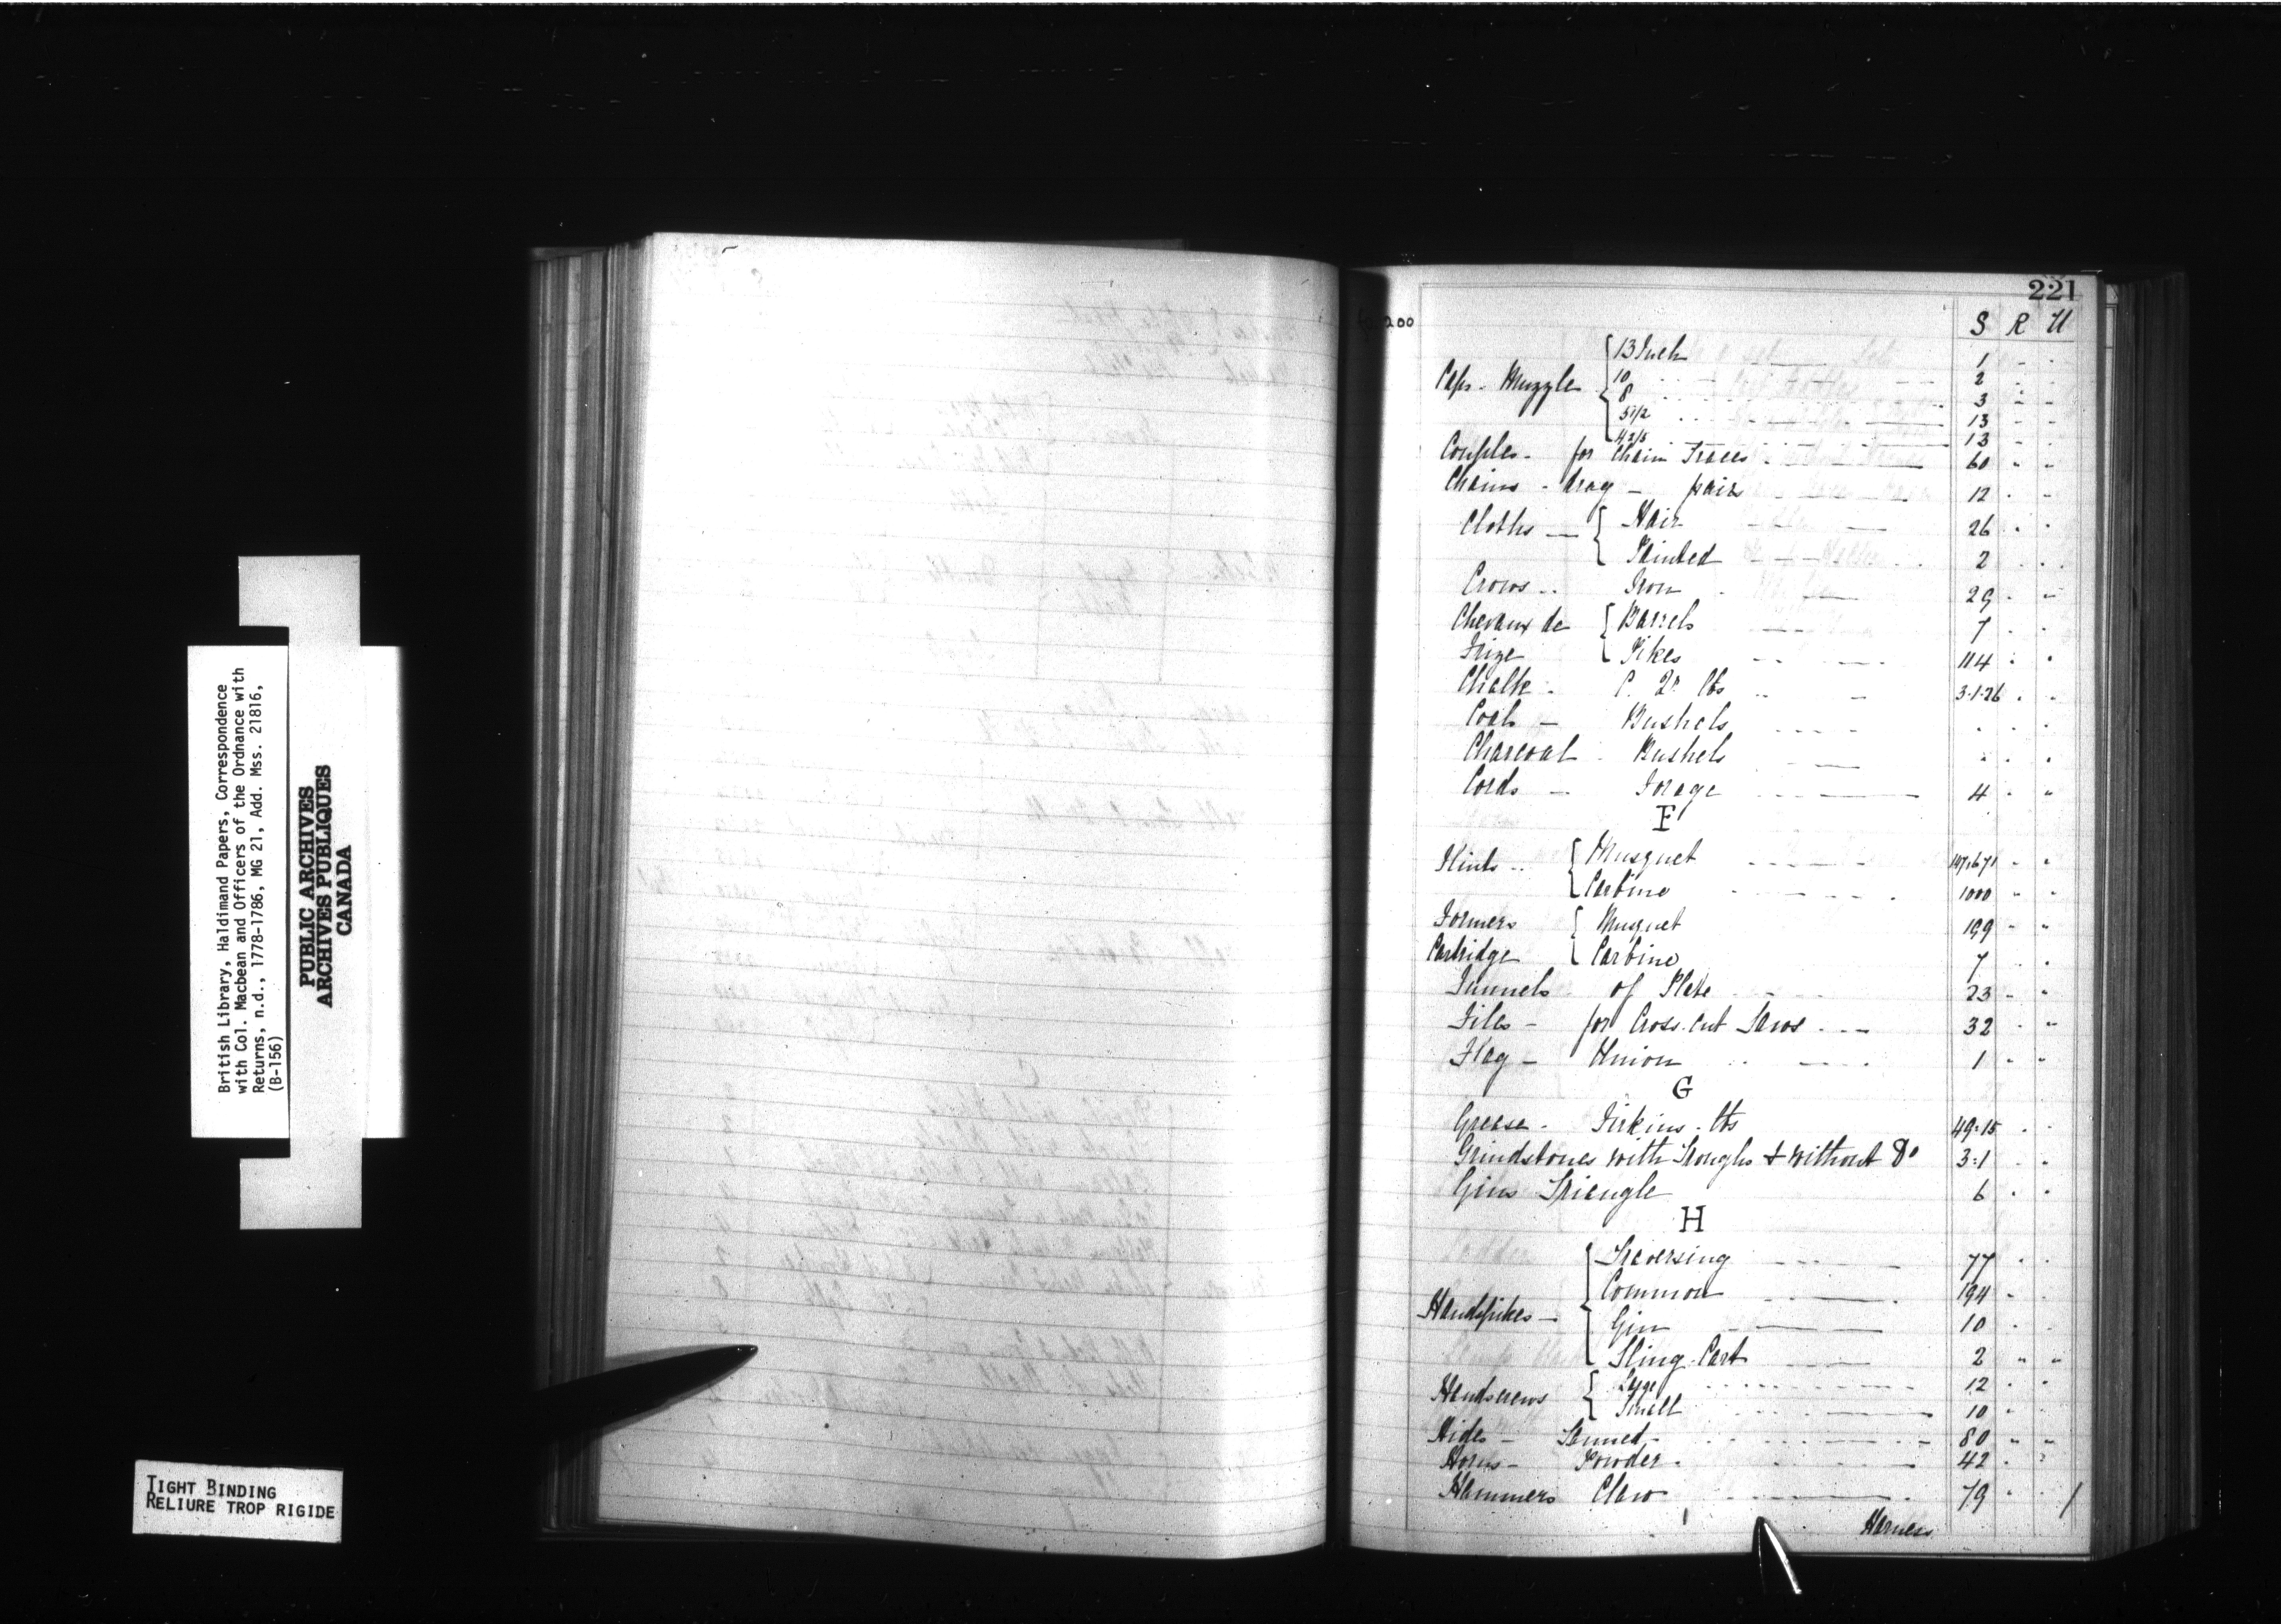 British Library, Haldimand Papers, Correspondence
with Col. Macbean and Officers of the Ordnance with
Returns, n.d., 1778-1786, MG 21, Add. Mss. 21816,
(B-156)
PUBLIC ARCHIVES
ARCHIVES PUBLIQUES
CANADA
TIGHT BINDING
RELIURE TROP RIGIDE
221
200
S R U
Caps - Muzzle { 13 Inch 1
10 2
8 3
5 1/2 13
4 2/5 13
Couples - for Chain Traces 60
Chains - drag - pairs 12
Cloths { Hair 26
Painted 2
Crows .. Iron 29
Chevaux de { Barrels 7
Frize Pikes 114
Chalk - C. Qr lbs 3-1-26
Coal - Bushels
Charcoal - Bushels
Cords - Forage 4
F
Flints .. { Musquet 147,671
Carbine 1000
Formers { Musquet 199
Cartridge Carbine 7
Funnels of Plate 23
Files - for Cross-cut Saws 32
Flag - Union 1
G
Grease - Firkins - lbs 49-15
Grindstones with Troughs & without Do 3-1
Gins Triangle 6
H
Handspikes - { Traversing 77
Common 194
Gin 10
Sling-Cart 2
Handscrews { Large 12
Small 10
Hides - Tanned - 80
Horns - Powder - 42
Hammers Claw 79
Harness